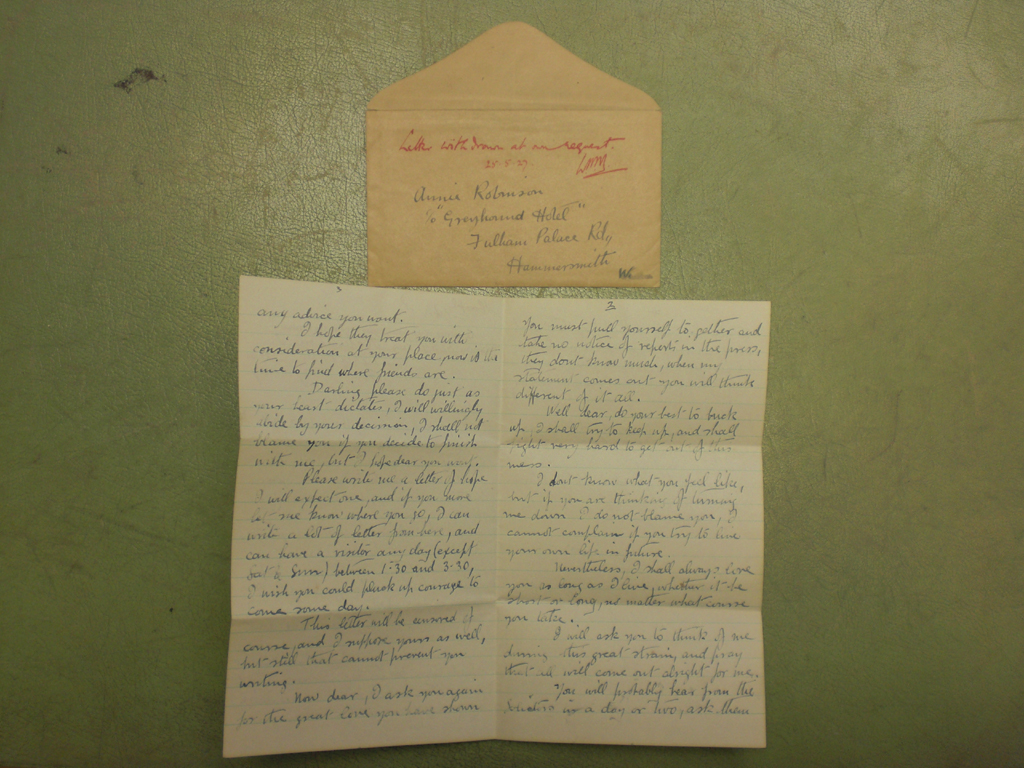 Letter withdrawn at own request.
25-5-27.
Annie Robinson
c/o "Greyhound Hotel"
Fulham Palace Rd,
Hammersmith
3
any advice you want.
I hope they treat you with
consideration at your place, now is the
time to find where friends are.
Darling please do just as
your heart dictates, I will willingly
abide by your decision, I shall not
blame you if you decide to finish
with me, but I hope dear you wont.
Please write me a letter of hope
I will expect one, and if you move
let me know where you go, I can
write a lot of letter from here, and
can have a visitor any day (except
Sat & Sun) between 1-30 and 3-30,
I wish you could pluck up courage to
come some day.
This letter will be censored of
course, and I suppose yours as well,
but still that cannot prevent you
writing.
Now dear, I ask you again
for the great love you have shown
2
You must pull yourself to gether and
take no notice of reports in the press,
they dont know much, when my
statement comes out you will think
different of it all.
Well dear, do your best to buck
up I shall try to keep up, and shall
fight very hard to get out of this
mess.
I dont know what you feel like,
but if you are thinking of turning
me down I do not blame you, I
cannot complain if you try to live
your own life in future.
Nevertheless, I shall always love
you as long as I live, whether it be
short or long, no matter what course
you take.
I will ask you to think of me
during this great strain, and pray
that all will come out alright for me.
You will probably hear from the
in a day or two, ask them